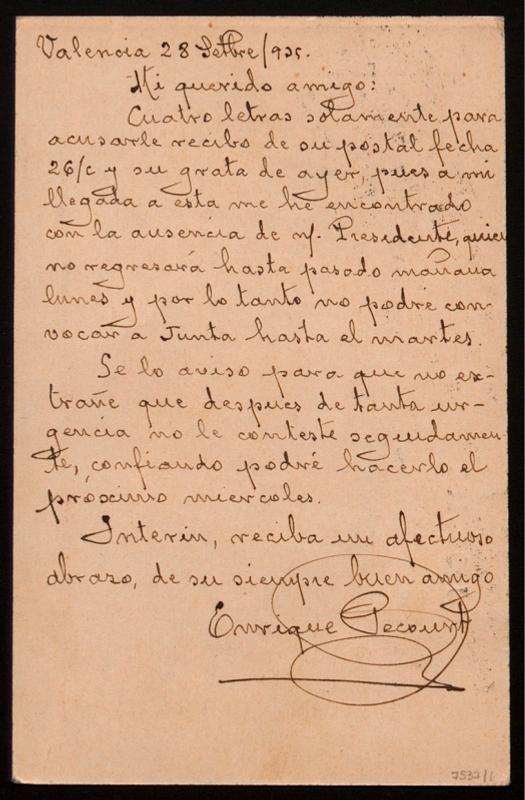 Valencia 28 Setbre/935.
Mi querido amigo:
Cuatro letras solamente para
acusarle recibo de su postal fecha
26/c y su grata de ayer, pues a mi
llegada a esta me he encontrado
con la ausencia de n/. Presidente, quien
no regresará hasta pasado mañana
lunes y por lo tanto no podré con-
vocar a Junta hasta el martes.
Se lo aviso para que no ex-
trañe que despues de tanta ur-
gencia no le conteste seguidamen-
te, confiando podré hacerlo el
próximo miercoles.
Interin, reciba un afectuoso
abrazo, de su siempre buen amigo
Enrique Pecourt
7537/1